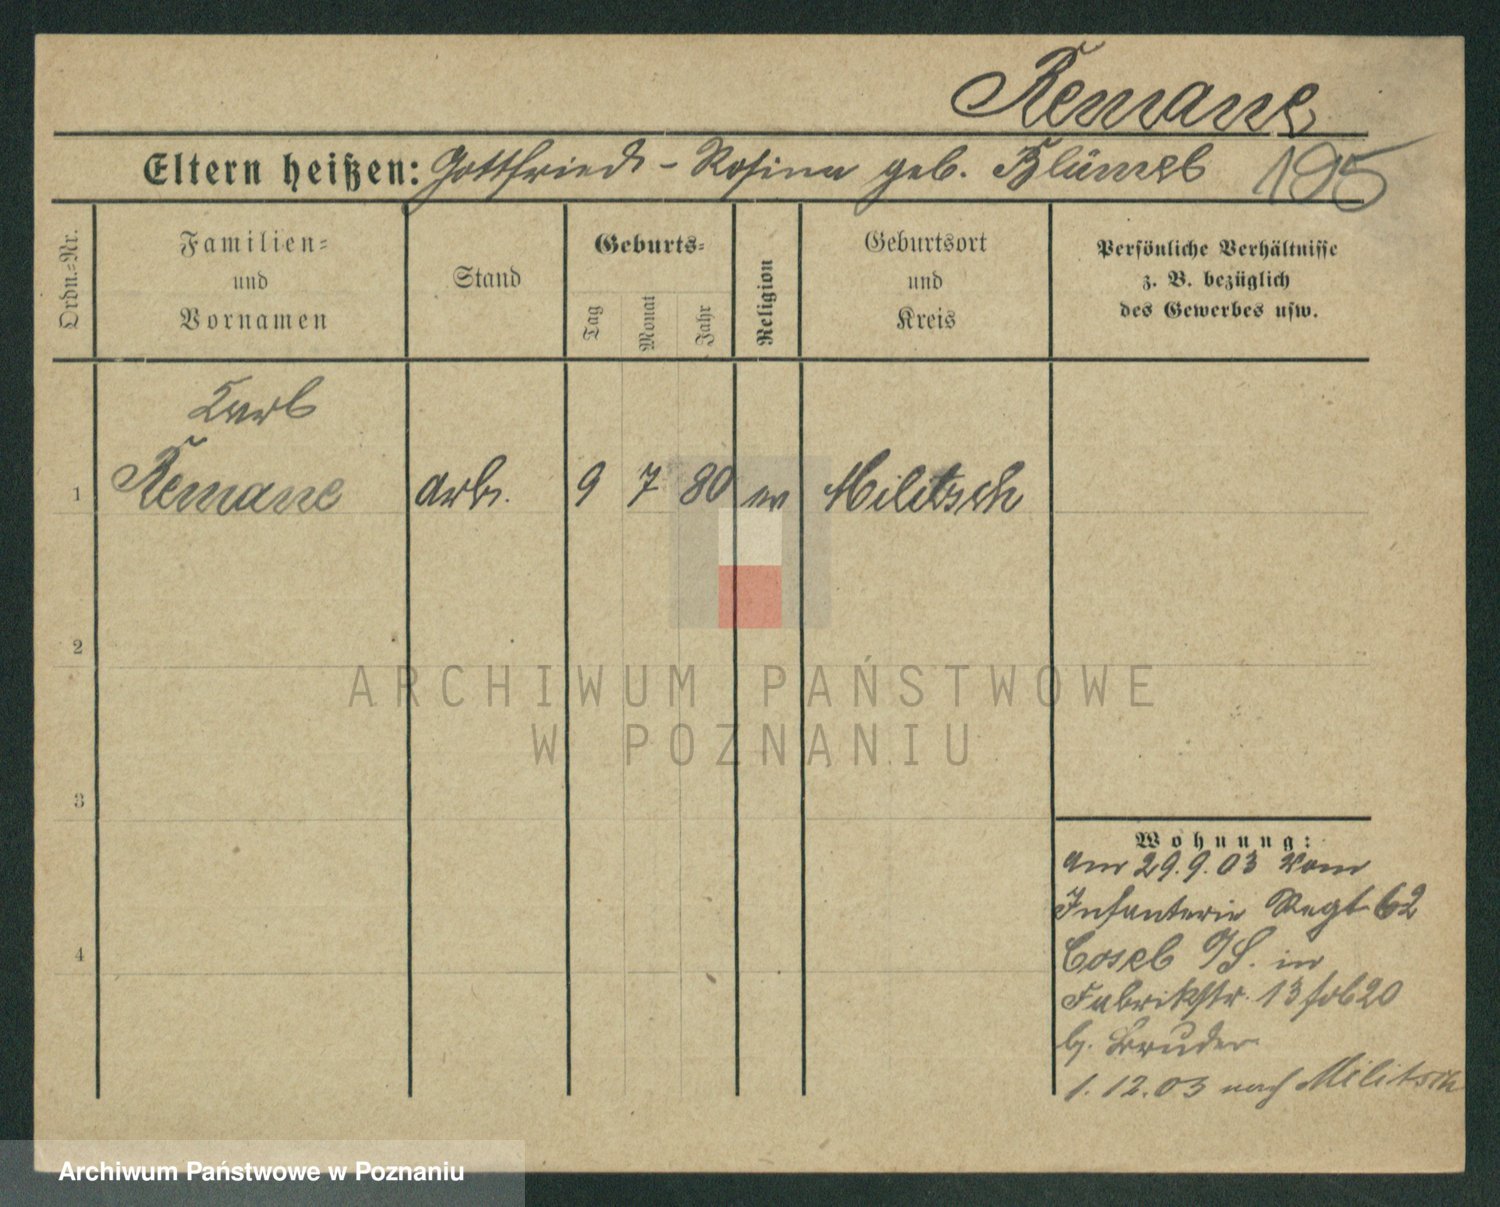 Remane
Eltern heißen: Gottfried - Rosina geb. Blümel 195
Ordn.=Nr.
Familien=
und
Vornamen
Stand
Geburts=
Tag
Monat
Jahr
Religion
Geburtsort
und
Kreis
Persönliche Verhältnisse
z. B. bezüglich
des Gewerbes usw.
Carl
1 Remane arb. 9 7 80 ev Militsch
2
ARCHIWUM PAŃSTWOWE
W POZNANIU
3
Wohnung:
am 29.9.03 vom
Infanterie Regt 62
4
Cosel O/S. in
Fabrikstr. 13
b. Bruder
1.12.03 nach Militsch
Archiwum Państwowe w Poznaniu